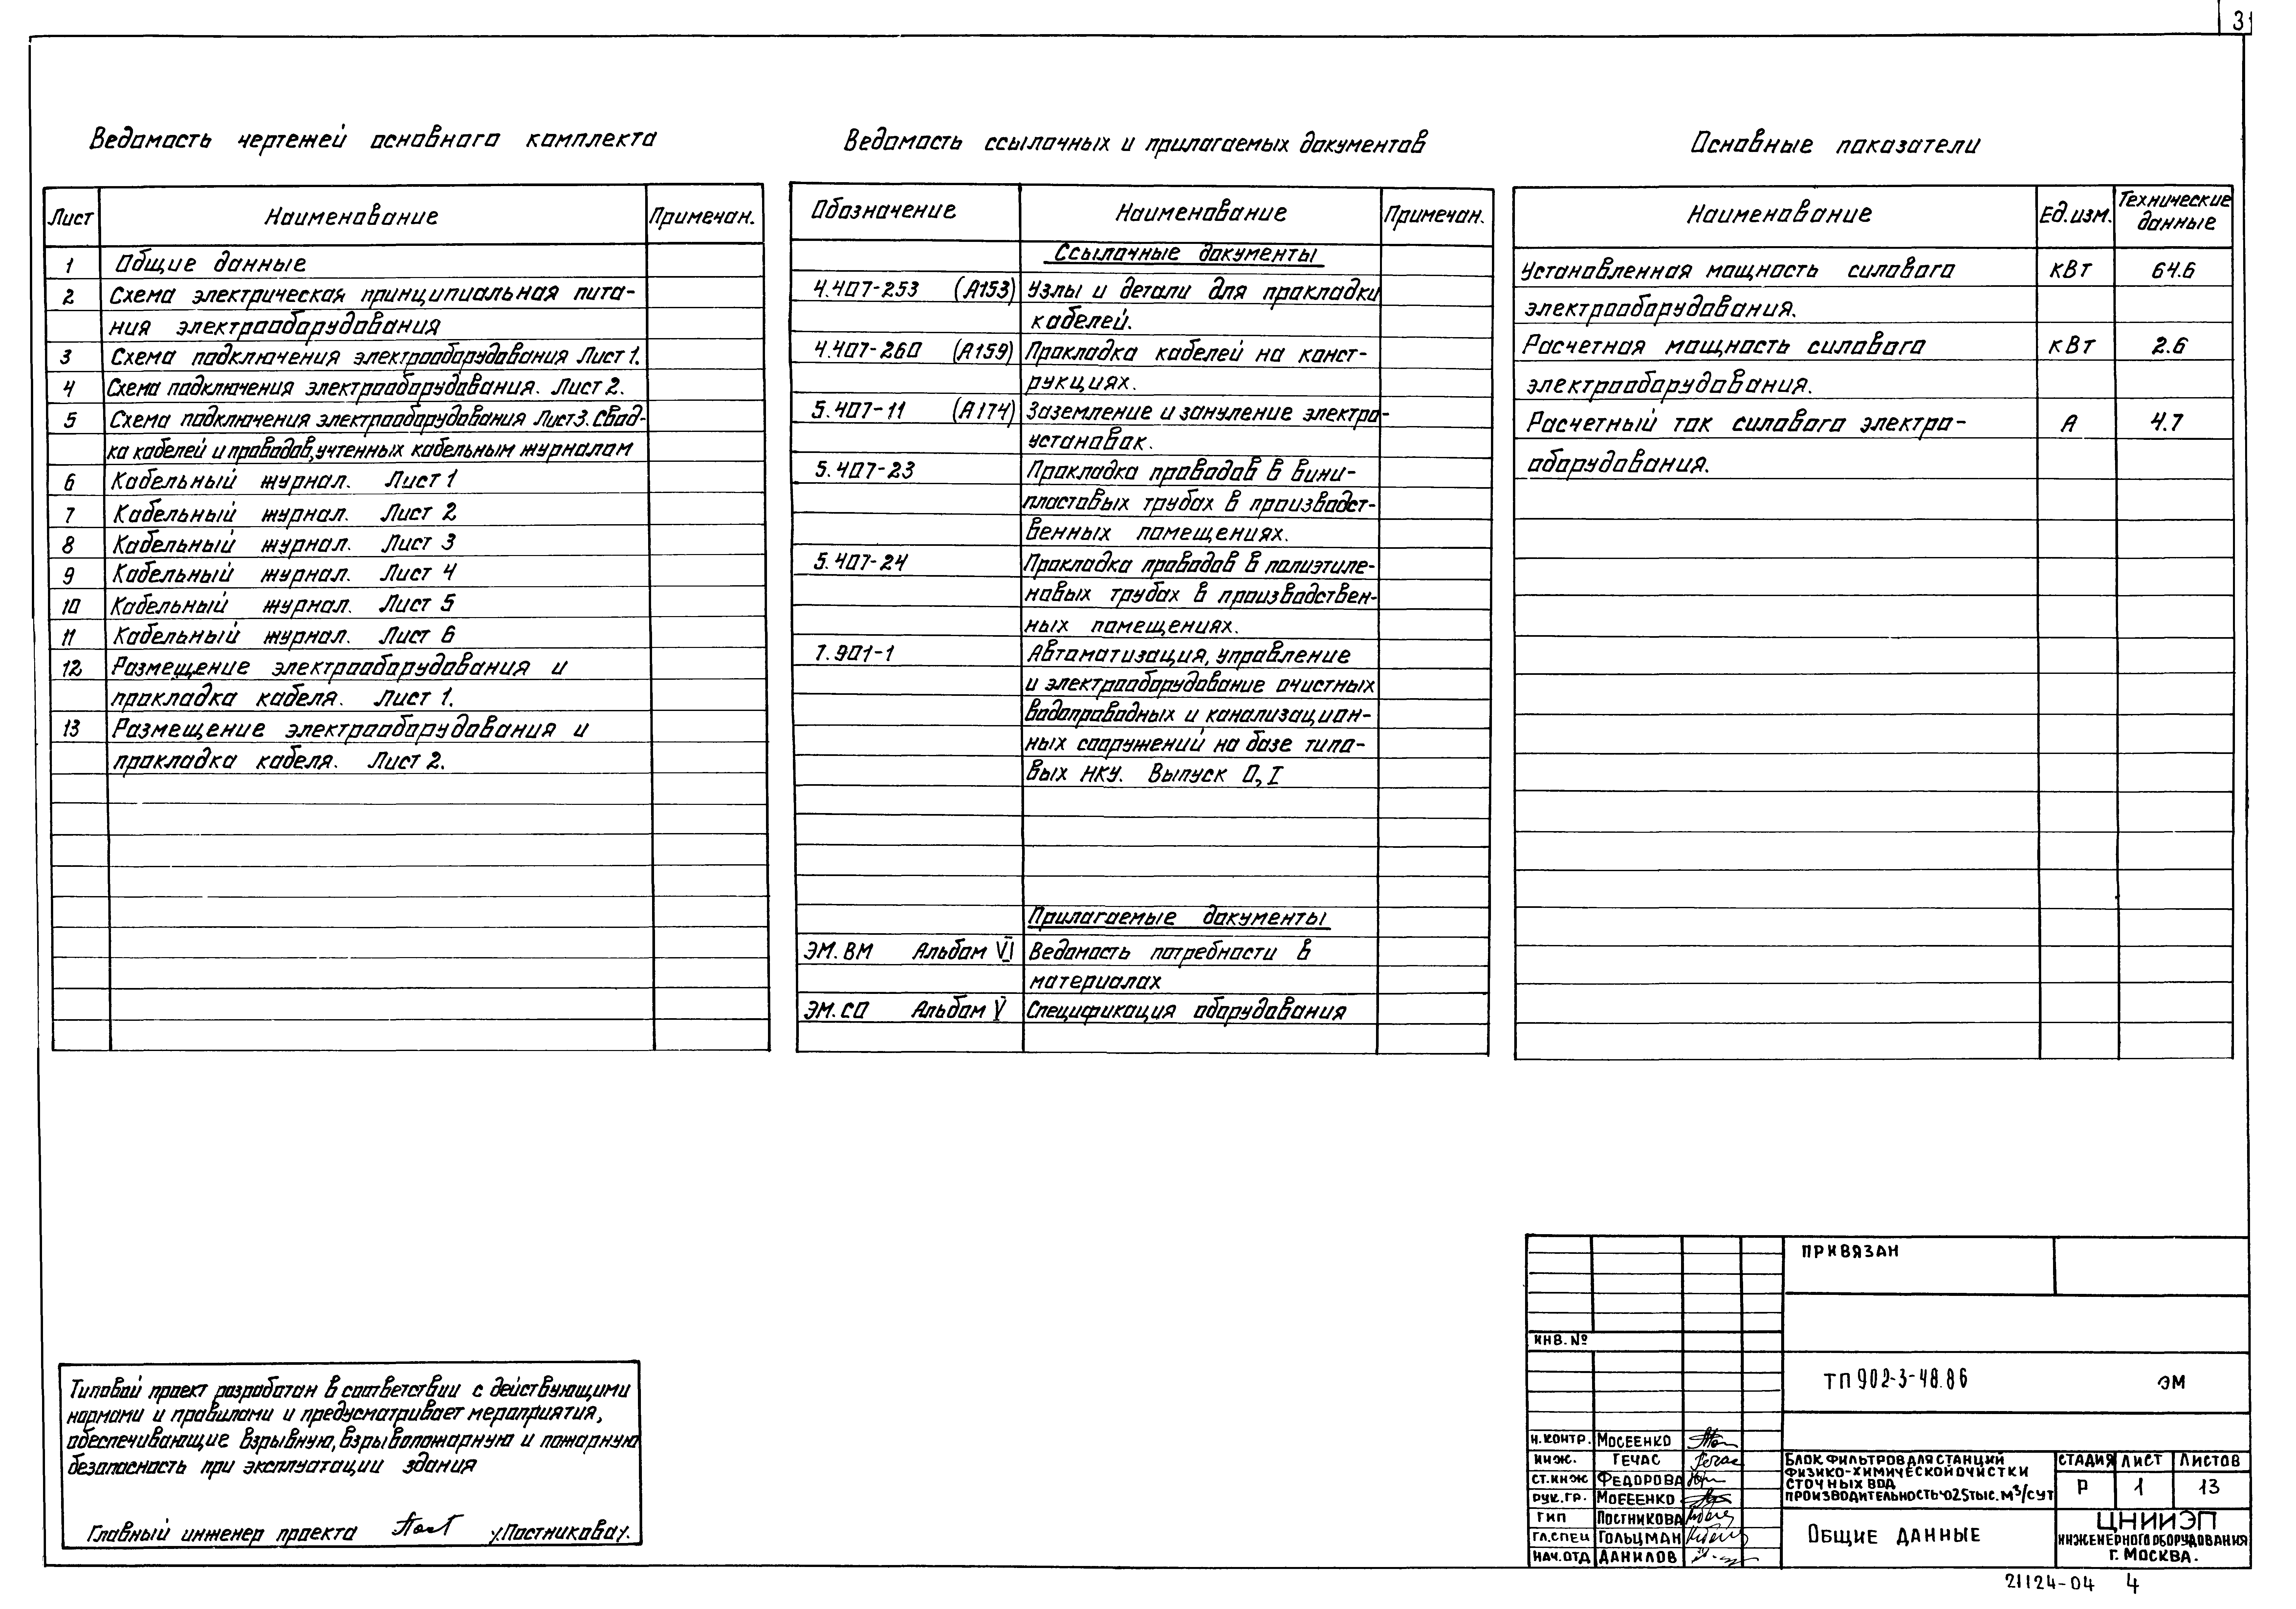 3
Ведомость чертежей основного комплекта
Лист Наименование Примечан.
1 Общие данные
2 Схема электрическая принципиальная пита-
ния электрооборудования
3 Схема подключения электрооборудования Лист 1.
4 Схема подключения электрооборудования. Лист 2.
5 Схема подключения электрооборудования Лист 3. Свод-
ка кабелей и проводов, учтенных кабельным журналом
6 Кабельный журнал. Лист 1
7 Кабельный журнал. Лист 2
8 Кабельный журнал. Лист 3
9 Кабельный журнал. Лист 4
10 Кабельный журнал. Лист 5
11 Кабельный журнал. Лист 6
12 Размещение электрооборудования и
прокладка кабеля. Лист 1.
13 Размещение электрооборудования и
прокладка кабеля. Лист 2.
Ведомость ссылочных и прилагаемых документов
Обозначение Наименование Примечан.
Ссылочные документы
4.407-253 (А153) Узлы и детали для прокладки
кабелей.
4.407-260 (А159) Прокладка кабелей на конст-
рукциях.
5.407-11 (А174) Заземление и зануление электро-
установок.
5.407-23 Прокладка проводов в вини-
пластовых трубах в производст-
венных помещениях.
5.407-24 Прокладка проводов в полиэтиле-
новых трубах в производствен-
ных помещениях.
7.901-1 Автоматизация, управление
и электрооборудование очистных
водопроводных и канализацион-
ных сооружений на базе типо-
вых НКУ. Выпуск 0, I
Прилагаемые документы
ЭМ.ВМ Альбом VI Ведомость потребности в
материалах
ЭМ.СО Альбом V Спецификация оборудования
Основные показатели
Наименование Ед.изм. Технические
данные
Установленная мощность силового кВт 64.6
электрооборудования.
Расчетная мощность силового кВт 2.6
электрооборудования.
Расчетный ток силового электро- А 4.7
оборудования.
Типовой проект разработан в соответствии с действующими
нормами и правилами и предусматривает мероприятия,
обеспечивающие взрывную, взрывопожарную и пожарную
безопасность при эксплуатации здания
Главный инженер проекта /Постникова/.
ПРИВЯЗАН
ИНВ. №
ТП 902-3-48.86 ЭМ
Н.КОНТР. МОСЕЕНКО
ИНЖ. ГЕЧАС
СТ.ИНЖ ФЕДОРОВА
РУК.ГР. МОСЕЕНКО
ГИП ПОСТНИКОВА
ГЛ.СПЕЦ ГОЛЬЦМАН
НАЧ.ОТД ДАНИЛОВ
БЛОК ФИЛЬТРОВ ДЛЯ СТАНЦИЙ
ФИЗИКО-ХИМИЧЕСКОЙ ОЧИСТКИ
СТОЧНЫХ ВОД
ПРОИЗВОДИТЕЛЬНОСТЬЮ 25 ТЫС. М³/СУТ
СТАДИЯ ЛИСТ ЛИСТОВ
Р 1 13
ОБЩИЕ ДАННЫЕ
ЦНИИЭП
ИНЖЕНЕРНОГО ОБОРУДОВАНИЯ
Г. МОСКВА.
21124-04 4